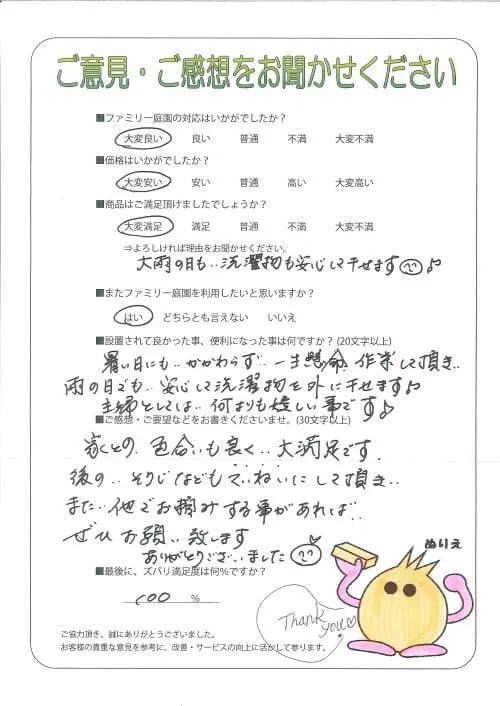 ご意見・ご感想をお聞かせください
■ファミリー庭園の対応はいかがでしたか?
大変良い 良い 普通 不満 大変不満
■価格はいかがでしたか?
大変安い 安い 普通 高い 大変高い
■商品はご満足頂けましたでしょうか?
大変満足 満足 普通 不満 大変不満
⇒よろしければ理由をお聞かせください。
大雨の日も‥洗濯物も安心して干せます♪
■またファミリー庭園を利用したいと思いますか?
はい どちらとも言えない いいえ
■設置されて良かった事、便利になった事は何ですか? (20文字以上)
暑い日にも‥かかわらず‥一生懸命 作業して頂き‥
雨の日でも‥安心して洗濯物を外に干せます♪
主婦としては‥何よりも嬉しい事です♪
■ご感想・ご要望などをお書きくださいませ。(30文字以上)
家との 色合いも良く‥大満足です。
後の‥そうじなどもていねいにして頂き‥
また‥他でお頼みする事があれば‥
ぜひお願い致します
ありがとうございました
■最後に、ズバリ満足度は何%ですか?
100 %
ぬりえ
Thank you♡
ご協力頂き、誠にありがとうございました。
お客様の貴重な意見を参考に、改善・サービスの向上に活かして参ります。